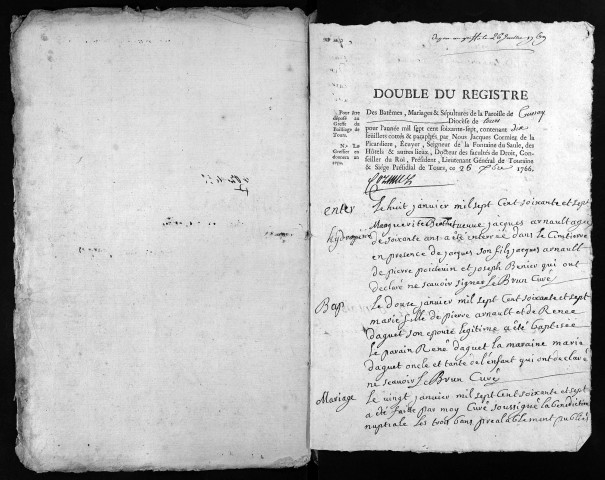 DOUBLE DU REGISTRE
Pour être
déposé au
Greffe du
Bailliage de
Tours.
Nª Le
Greffier en
donnera un
reçu.
Des Batêmes, Mariages & Sépultures de la Paroisse de
Diocèse de
pour l'année mil sept cent soixante-sept, contenant dix
feuillets cottés & paraphés par Nous Jacques Cormier de la
Picardiere, Ecuyer, Seigneur de la Fontaine du Saule, des
Hôtels & autres lieux, Docteur des facultés de Droit, Con-
seiller du Roi, Président, Lieutenant Général de Touraine
& Siége Présidial de Tours, ce 26 1766.
Cormier
enter
Le huit janvier mil sept Cent soixante et sept
Marguerite veuve jacques arnault agée
de soixante ans a été interrée dans le Cimtierre
en presence de jacques son fils jacques arnault
de pierre poidevin et joseph Benier qui ont
declaré ne scavoir signer Le Brun Curé
Bap
Le douze janvier mil sept Cent soixante et sept
marie fille de pierre arnault et de Renee
daguet son epouse legitime a été baptisée
Le parain René daguet la maraine marie
daguet oncle et tante de l'enfant qui ont declaré
ne scavoir Le Brun Curé
Mariage
Le vingt janvier mil sept Cent soixante et sept
a été faitte par moy Curé soussigné la benediction
nuptiale les trois bans prealablement publiés